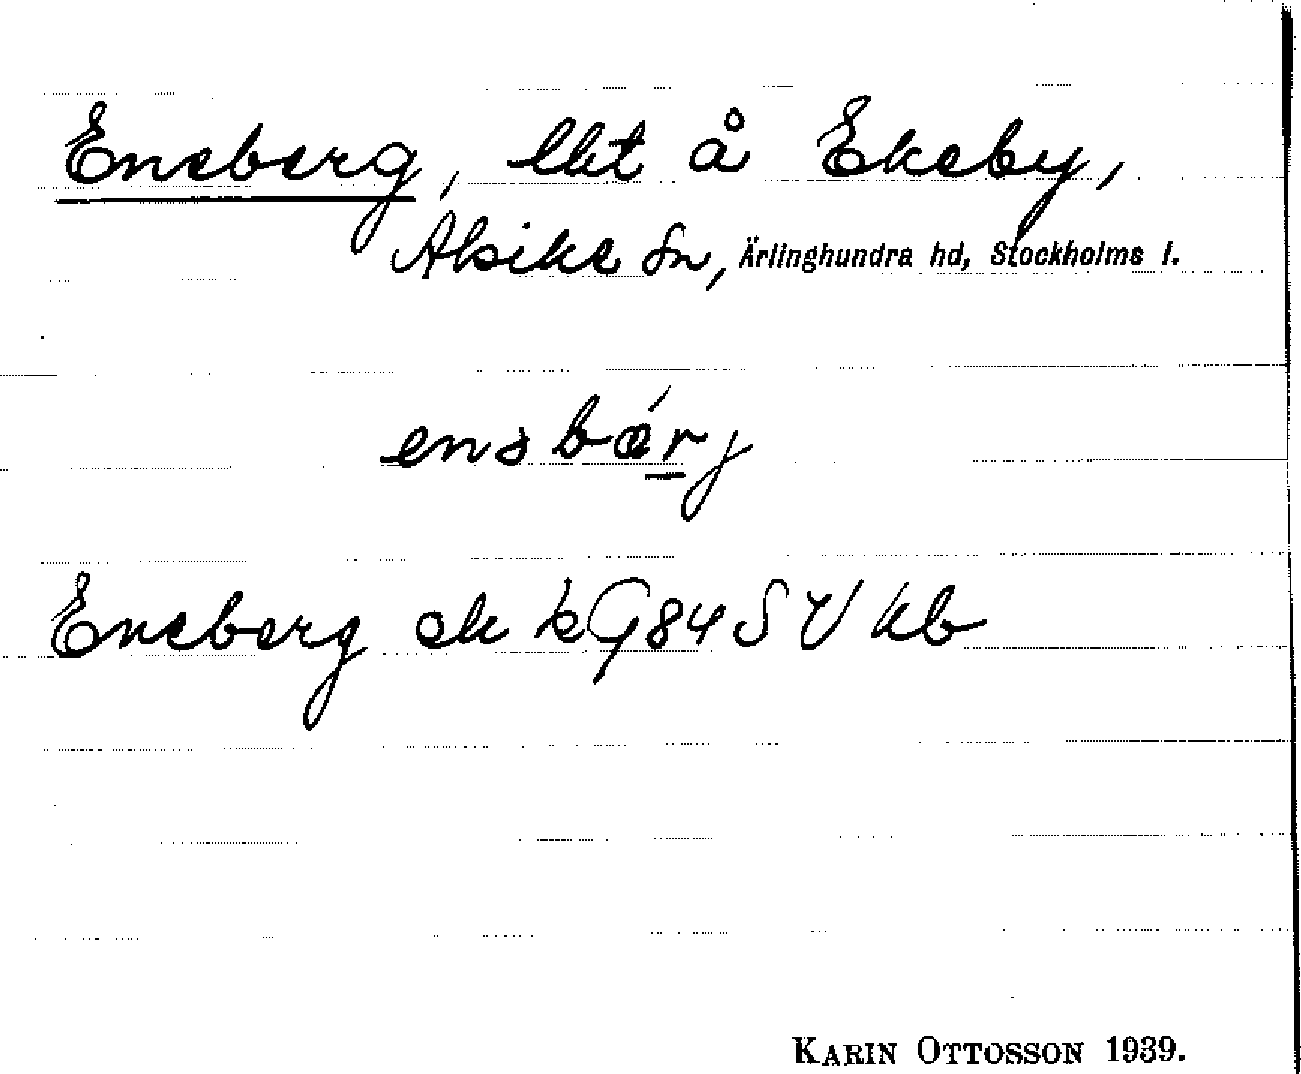 Eneberg, lht å Ekeby,
Alsike sn, Ärlinghundra hd, Stockholms l.
enəbærj
Eneberg ek kG84SV kb
KARIN OTTOSSON 1939.